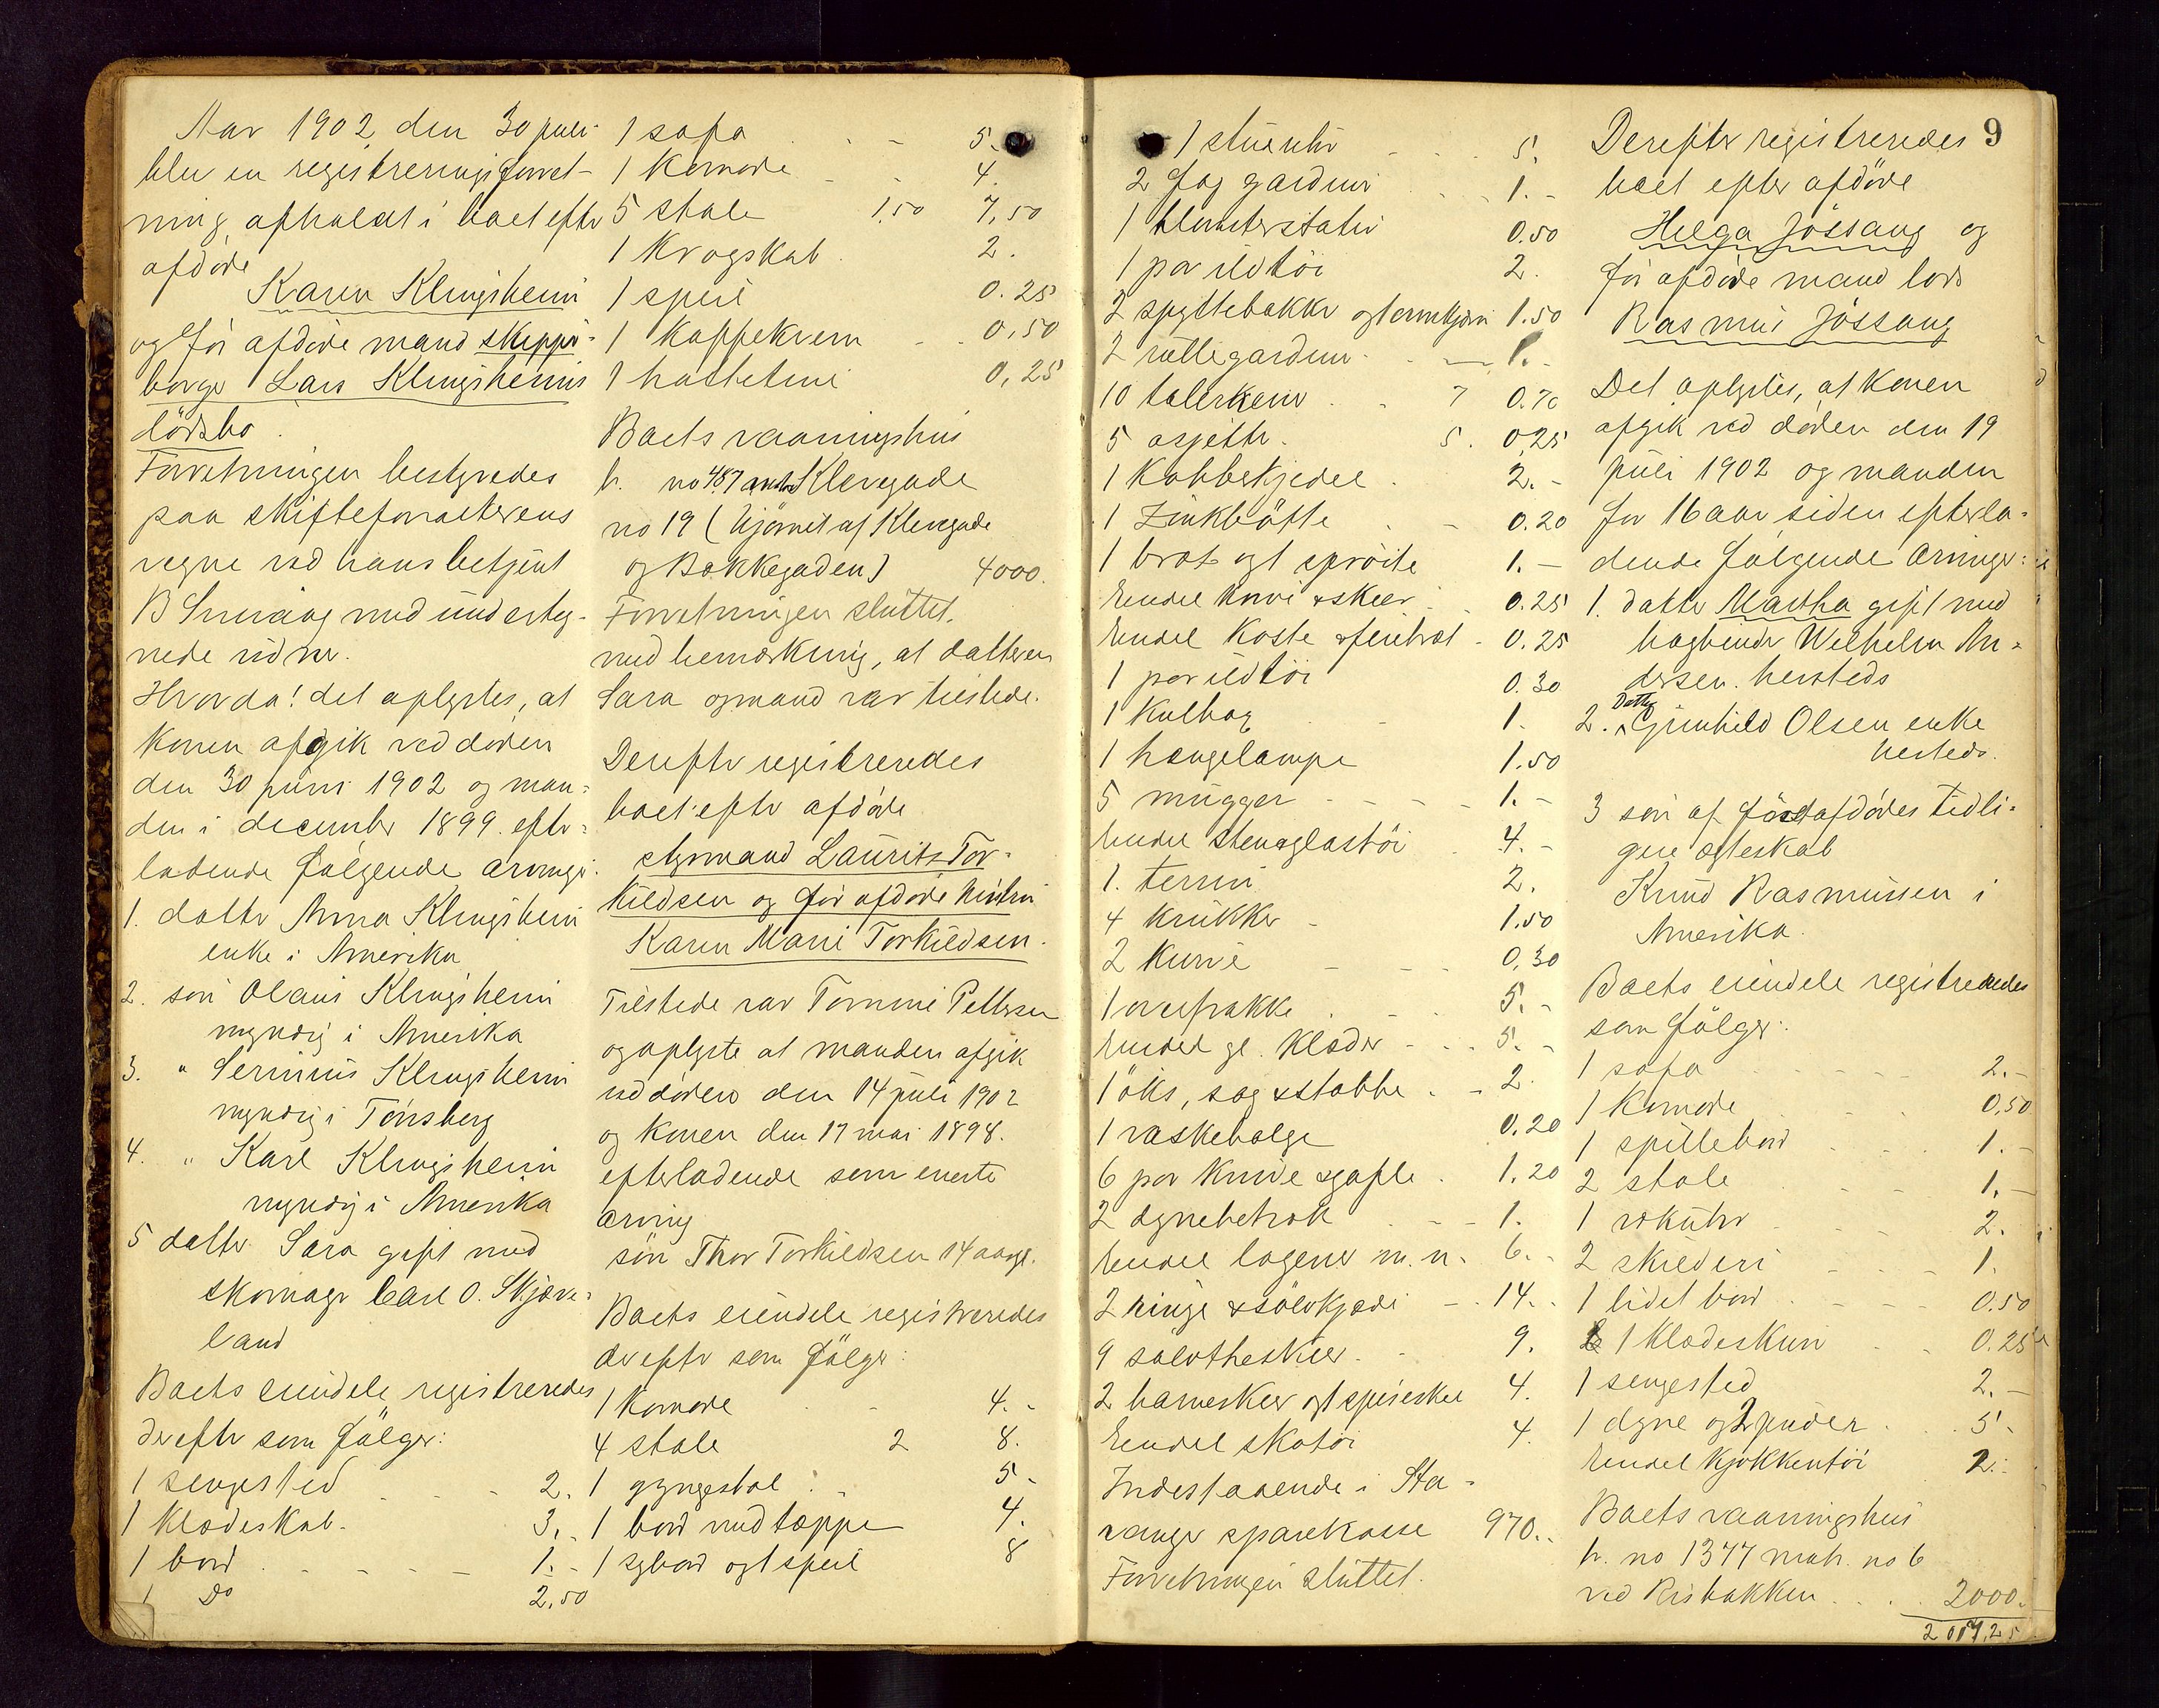 Aar 1902 den 30 juli
blev en registreringsforret-
ning afholdt i boet efter
afdøde
Karen Klingsheim
og før afdøde mand skipps-
borger Lars Klingsheims
dødsbo.
Forretningen bestyredes
paa skifteforvalterens
vegne ved hans betjent
B Smaaog med underteg-
nede vidner.
Hvorda! det oplystes, at
konen afgik ved døden
den 30 juni 1902 og man-
den i december 1899. efter-
ladende følgende arvinger:
1. datter Anna Klingsheim
enke i Amerika
2. søn Olaus Klingsheim
myndig i Amerika
3. " Serinius Klingsheim
myndig i Tønsberg
4. " Karl Klingsheim
myndig i Amerika
5 datter Sara gift med
skomager Carl O. Skjæve-
land
Boets eiendele registreredes
derefter som følger:
1 sengested 2.
1 klædeskab 3.
1 bord 1.-
1 Do 2,50
1 sofa 5.
1 komode 4.
5 stole 1,50 7,50
1 krogskab 2.
1 speil 0.25
1 kaffekvern 0,50
1 hatteteine 0,25
Boets vaaningshus
br. no 487 Klevegade
no 19 (hjørnet af Klevegade
og Bakkegaden) 4000.
Forretningen sluttet.
med bemærkning, at datteren
Sara og mand var tilstede.
Derefter registreredes
boet efter afdøde
styrmand Laurits Tor-
kildsen og før afdøde hustru
Karen Marie Torkildsen.
Tilstede var Tommi Pettersen
og oplyste at manden afgik
ved døden den 14 juli 1902
og konen den 17 mai 1898.
efterladende som eneste
arving
søn Thor Torkildsen 14 aar gl.
Boets eiendele registreredes
derefter som følger:
1 komode 4.-
4 stole 2 8.
1 gyngestol 5-
1 bord med tæppe 4.
1 sybord og 1 speil 8
9
1 stueuhr 5.
2 fag gardiner 1.-
1 blomsterstativ 0.50
1 par ildtøi 2.
2 spyttebakker og 1 1.50
2 rullegardiner 1.-
10 talerkener 7 0.70
5 asjetter 5. 0,25
1 kobbekjedel 2.-
1 Zinkbøtte 0.20
1 brot og 1 sprøite 1.-
Endel knive & skeer 0.25
Endel koste & feiebræt 0.25
1 par ildtøi 0.30
1 kulbox 1.
1 hængelampe 1.50
5 mugger 1.-
Endel sten & glastøi 4.-
1. terrin 2.
4 krukker 1.50
2 kurve 0,30
1 overfrakke 5.-
Endel gl. klæder 5.-
1 øks, sag & stabbe 2.
1 vaskebalge 0.20
6 par knive & gafle 1.20
2 dynebetræk 1.
Endel lagener m.n. 6.-
2 ringe & sølvkjæde 14.
9 sølvtheskeer 9.
2 barneskeer og 1 spiseskee 4.
Endel skotøi 4.
Indestaaende i Sta-
vanger sparekasse 970.
Forretningen sluttet.
Derefter registreredes
boet efter afdøde
Helga Jøssang og
før afdøde mand lods
Rasmus Jøssang
Det oplystes, at konen
afgik ved døden den 19
juli 1902 og manden
for 16 aar siden efterla-
dende følgende arvinger:
1. datter Martha gift med
bogbinder Wilhelm An-
dersen. hersteds
2. Datter Gunhild Olsen enke
hersteds.
3 søn af førstafdødes tidli-
gere ægteskab
Knud Rasmussen i
Amerika.
Boets eiendele registreredes
som følger:
1 sofa 2.-
1 komode 0,50
1 spillebord 1.-
2 stole 1.-
1 vækuhr 2.
2 skilderi 1.
1 lidet bord 0.50
1 klædeskurv 0.25
1 sengested 2.-
1 dyne og 2 puder 5-
Endel kjøkkentøi 2.-
Boets vaaningshus
br. no 1377 matr. no 6
ved Risbakken 2000.
2017,25